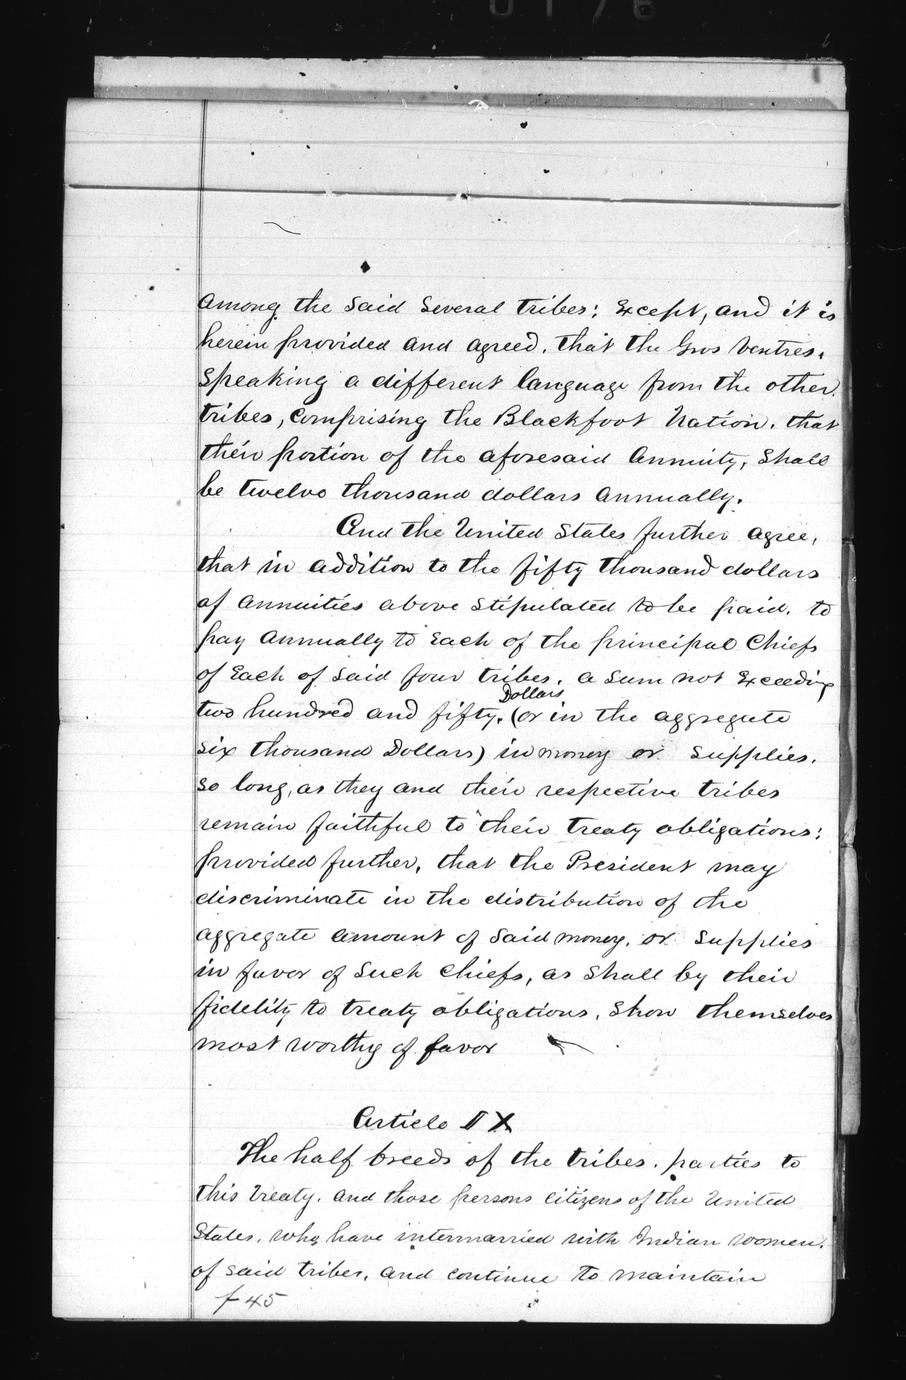 0176
among the said several tribes; Except, and it is
herein provided and agreed, that the Gros Ventres,
speaking a different language from the other
tribes, comprising the Blackfoot Nation, that
their portion of the aforesaid annuity, shall
be twelve thousand dollars annually.
And the United States further agree,
that in addition to the fifty thousand dollars
of annuities above stipulated to be paid, to
pay annually to Each of the principal Chiefs
of Each of said four tribes, a sum not Exceeding
Dollars
two hundred and fifty, (or in the aggregate
six thousand Dollars) in money or supplies,
so long, as they and their respective tribes
remain faithful to their treaty obligations;
provided further, that the President may
discriminate in the distribution of the
aggregate amount of said money, or supplies
in favor of such chiefs, as shall by their
fidelity to treaty obligations, show themselves
most worthy of favor
Article IX
The half breeds of the tribes, parties to
this treaty, and those persons citizens of the United
States, who have intermarried with Indian women,
of said tribes, and continue to maintain
f 45